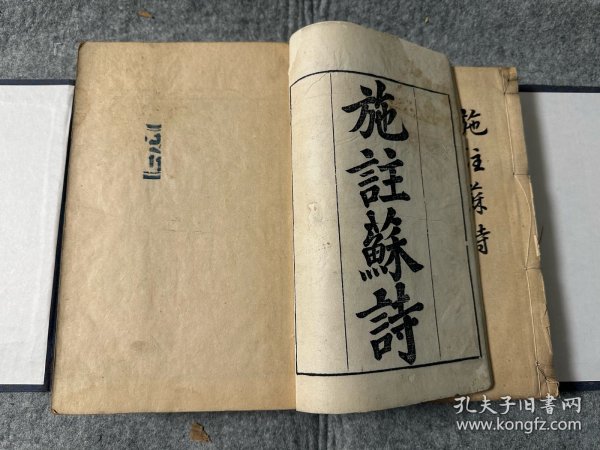 施註蘇詩
施註蘇詩
孔夫子旧书网
www.kongfz.com